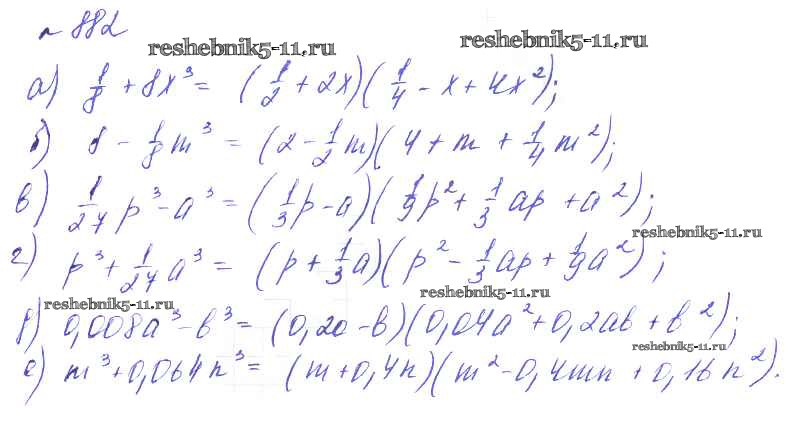 № 882
reshebnik5-11.ru reshebnik5-11.ru
а) 1/8 + 8x³ = (1/2 + 2x)(1/4 - x + 4x²);
б) 8 - 1/8 m³ = (2 - 1/2 m)(4 + m + 1/4 m²);
в) 1/27 p³ - a³ = (1/3 p - a)(1/9 p² + 1/3 ap + a²);
reshebnik5-11.ru
г) p³ + 1/27 a³ = (p + 1/3 a)(p² - 1/3 ap + 1/9 a²);
reshebnik5-11.ru reshebnik5-11.ru
д) 0,008a³ - b³ = (0,2a - b)(0,04a² + 0,2ab + b²);
reshebnik5-11.ru
е) m³ + 0,064n³ = (m + 0,4n)(m² - 0,4mn + 0,16n²).